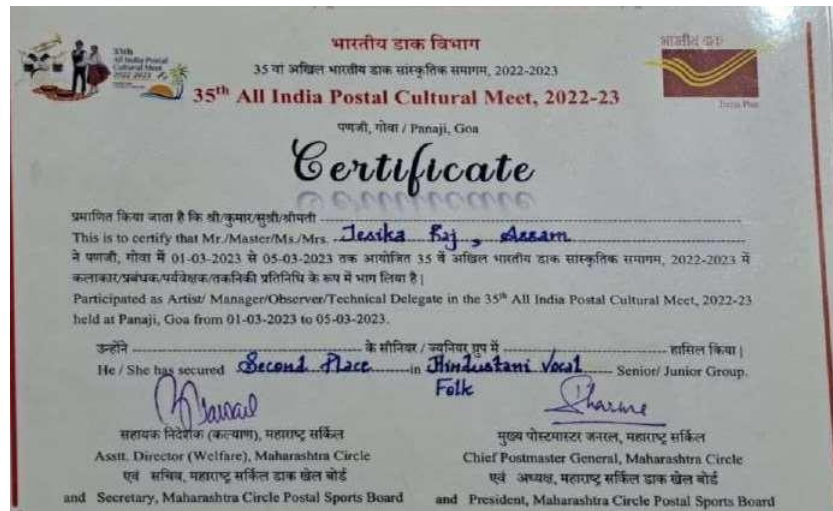 35th
All India Postal
Cultural Meet
2022-2023
भारतीय डाक विभाग
भारतीय डाक
35 वां अखिल भारतीय डाक सांस्कृतिक समागम, 2022-2023
35th All India Postal Cultural Meet, 2022-23
India Post
पणजी, गोवा / Panaji, Goa
Certificate
प्रमाणित किया जाता है कि श्री/कुमार/सुश्री/श्रीमती
This is to certify that Mr./Master/Ms./Mrs. Jesika Raj, Assam
ने पणजी, गोवा में 01-03-2023 से 05-03-2023 तक आयोजित 35 वें अखिल भारतीय डाक सांस्कृतिक समागम, 2022-2023 में
कलाकार/प्रबंधक/पर्यवेक्षक/तकनिकी प्रतिनिधि के रूप में भाग लिया है |
Participated as Artist/ Manager/Observer/Technical Delegate in the 35th All India Postal Cultural Meet, 2022-23
held at Panaji, Goa from 01-03-2023 to 05-03-2023.
उन्होंने के सीनियर / ज्यूनियर ग्रुप में हासिल किया |
He / She has secured Second Place in Hindustani Vocal Senior/ Junior Group.
Folk
Sharma
सहायक निदेशक (कल्याण), महाराष्ट्र सर्किल
मुख्य पोस्टमास्टर जनरल, महाराष्ट्र सर्किल
Asstt. Director (Welfare), Maharashtra Circle
Chief Postmaster General, Maharashtra Circle
एवं सचिव, महाराष्ट्र सर्किल डाक खेल बोर्ड
एवं अध्यक्ष, महाराष्ट्र सर्किल डाक खेल बोर्ड
and Secretary, Maharashtra Circle Postal Sports Board
and President, Maharashtra Circle Postal Sports Board